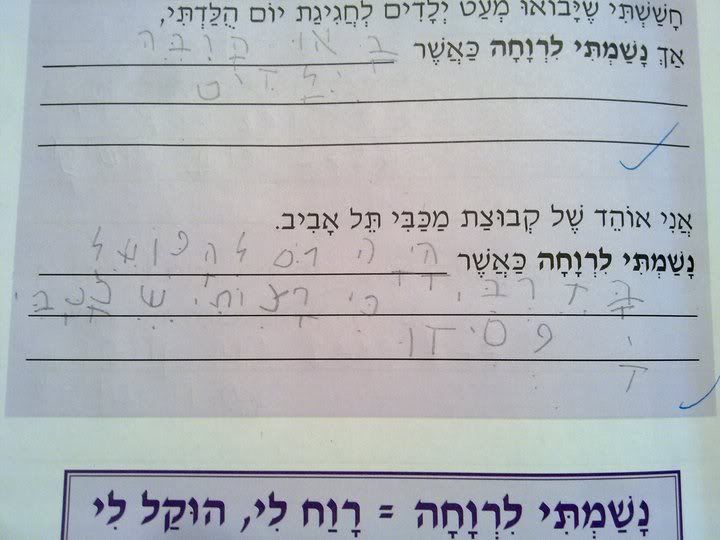 חָשַׁשְׁתִּי שֶׁיָּבוֹאוּ מְעַט יְלָדִים לַחֲגִיגַת יוֹם הֻלַּדְתִּי,
אַךְ נָשַׁמְתִּי לִרְוָחָה כַּאֲשֶׁר באו הרבה
ילדים
אֲנִי אוֹהֵד שֶׁל קְבוּצַת מַכַּבִּי תֵּל אָבִיב.
נָשַׁמְתִּי לִרְוָחָה כַּאֲשֶׁר היה
בדרבי כי
נָשַׁמְתִּי לִרְוָחָה = רָוַח לִי, הוּקַל לִי